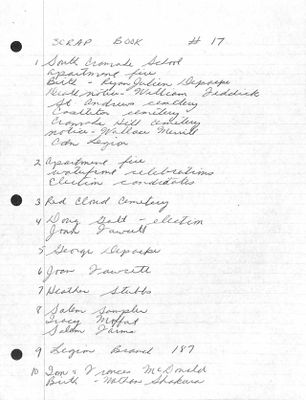 SCRAP BOOK # 17
1 South Cromade School
apartment fire
Birth - Ryan Julien Depaepe
Death notice - William Feddick
St Andrews cemetery
Coaleton cemetery
Cromade Hill cemetery
notice - Wallace Merrill
Cdn Legion
2 apartment fire
waterfront celebrations
Election candidates
3 Red Cloud Cemetery
4 Doug Galt - election
Joan Fawcett
5 George Depaepe
6 Joan Fawcett
7 Heather Stubbs
8 Salem Sampler
Tracy Moffat
Salem Farms
9 Legion Branch 187
10 Tom & Frances McDonald
Birth - Nathan Shakura